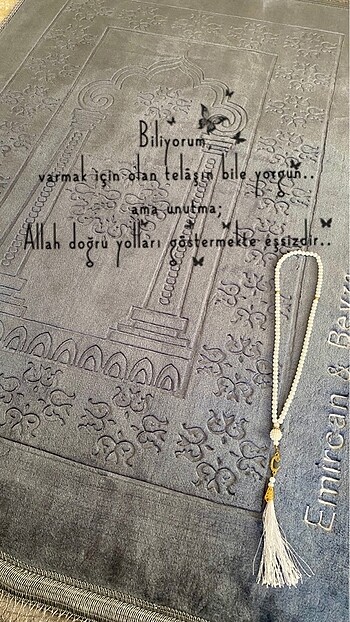 Biliyorum,
varmak için olan telaşın bile yorgun..
ama unutma;
Allah doğru yolları göstermekte eşsizdir..
Emircan &